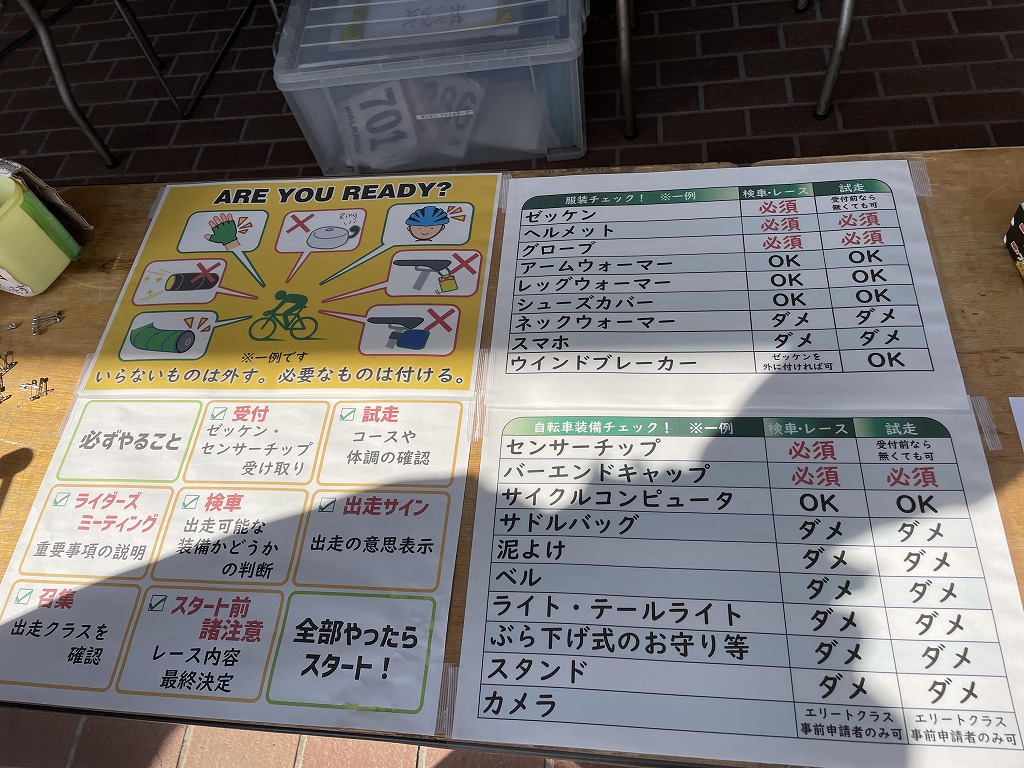 ゼッケン
ボックス
701
ARE YOU READY?
Ring
※一例です
いらないものは外す。必要なものは付ける。
必ずやること
受付
ゼッケン・
センサーチップ
受け取り
試走
コースや
体調の確認
ライダーズ
ミーティング
重要事項の説明
検車
出走可能な
装備かどうか
の判断
出走サイン
出走の意思表示
召集
出走クラスを
確認
スタート前
諸注意
レース内容
最終決定
全部やったら
スタート！
服装チェック！ ※一例 検車・レース 試走
ゼッケン 必須 受付前なら
無くても可
ヘルメット 必須 必須
グローブ 必須 必須
アームウォーマー OK OK
レッグウォーマー OK OK
シューズカバー OK OK
ネックウォーマー ダメ ダメ
スマホ ダメ ダメ
ウインドブレーカー ゼッケンを
外に付ければ可 OK
自転車装備チェック！ ※一例 検車・レース 試走
センサーチップ 必須 受付前なら
無くても可
バーエンドキャップ 必須 必須
サイクルコンピュータ OK OK
サドルバッグ ダメ ダメ
泥よけ ダメ ダメ
ベル ダメ ダメ
ライト・テールライト ダメ ダメ
ぶら下げ式のお守り等 ダメ ダメ
スタンド ダメ ダメ
カメラ エリートクラス
事前申請者のみ可 エリートクラス
事前申請者のみ可